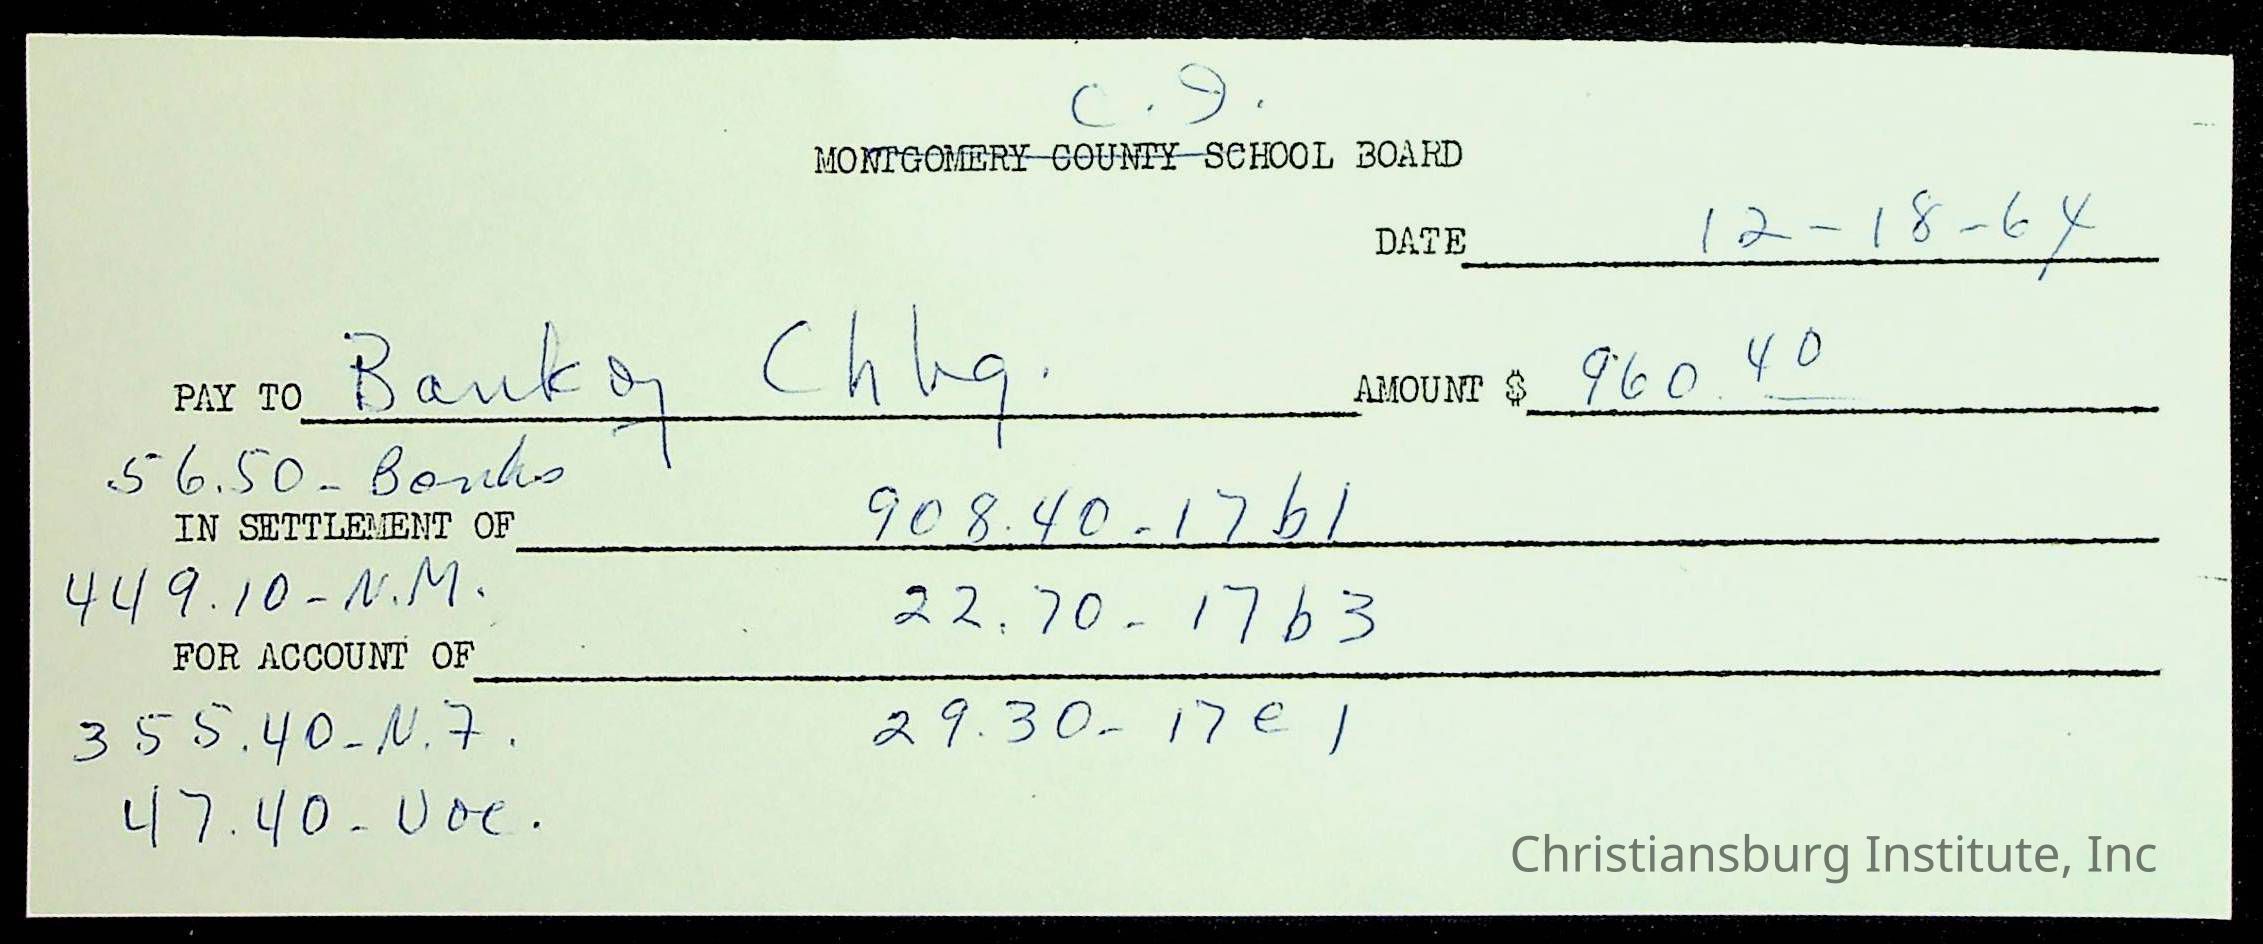 C.I.
MONTGOMERY COUNTY SCHOOL BOARD
DATE 12-18-64
PAY TO Bank of Chbg. AMOUNT $ 960.40
56.50 - Banks
IN SETTLEMENT OF 908.40 - 17b1
449.10 - N.M. 22.70 - 17b3
FOR ACCOUNT OF
355.40 - N.F. 29.30 - 17e1
47.40 - Voc.
Christiansburg Institute, Inc